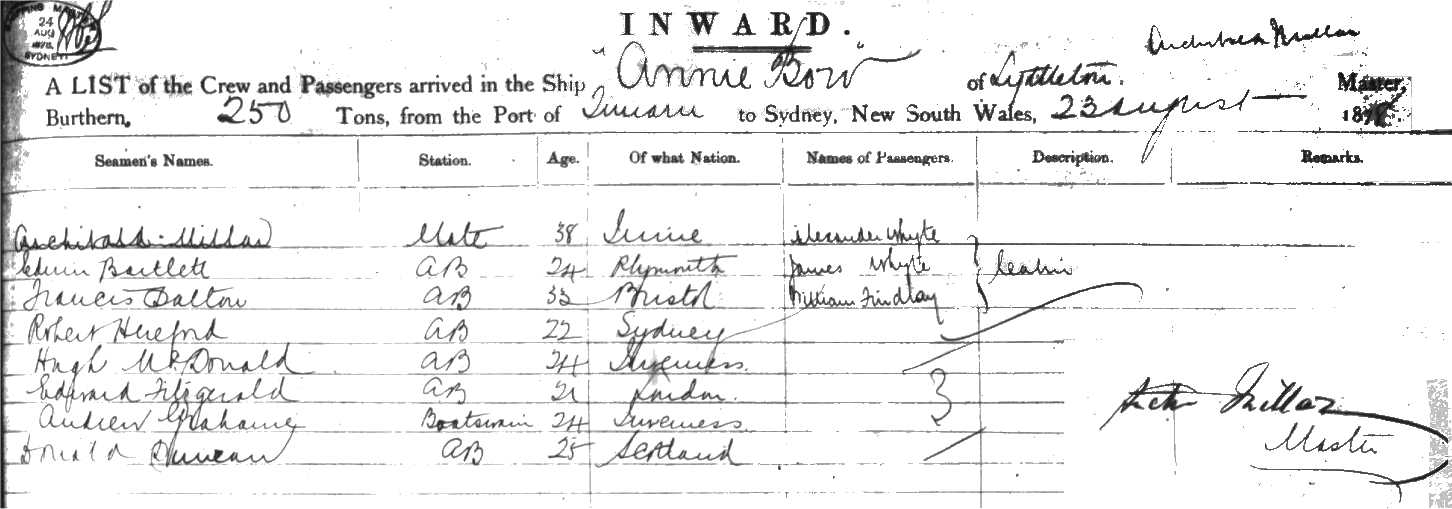 SHIPPING MASTER
24
AUG
1878
SYDNEY
INWARD.
Archibald Millar
A LIST of the Crew and Passengers arrived in the Ship "Annie Bow" of Lyttleton. Master,
Burthern, 250 Tons, from the Port of Timaru to Sydney, New South Wales, 23 August 1878.
Seamen's Names. Station. Age. Of what Nation. Names of Passengers. Description. Remarks.
Archibald Millar Mate 38 Alexander Whyte
Edwin Bartlett AB 24 Plymouth James Whyte Cabin
Francis Dalton AB 33 Bristol William Findlay
Robert Hereford AB 22 Sydney
Hugh McDonald AB 24 Inverness.
Edward Fitzgerald AB 21 London.
3
Andrew Grahame Boatswain 24 Inverness.
Donald Duncan AB 25 Scotland
Millar
Master